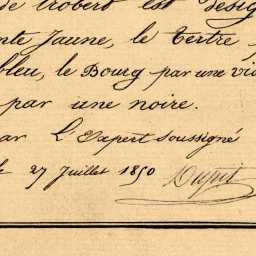 de trobert est desig
nte Jaune, le Tertre
bleu, le Bourg par une vi
par une noire.
ar L'Expert soussigné
27 Juillet 1850